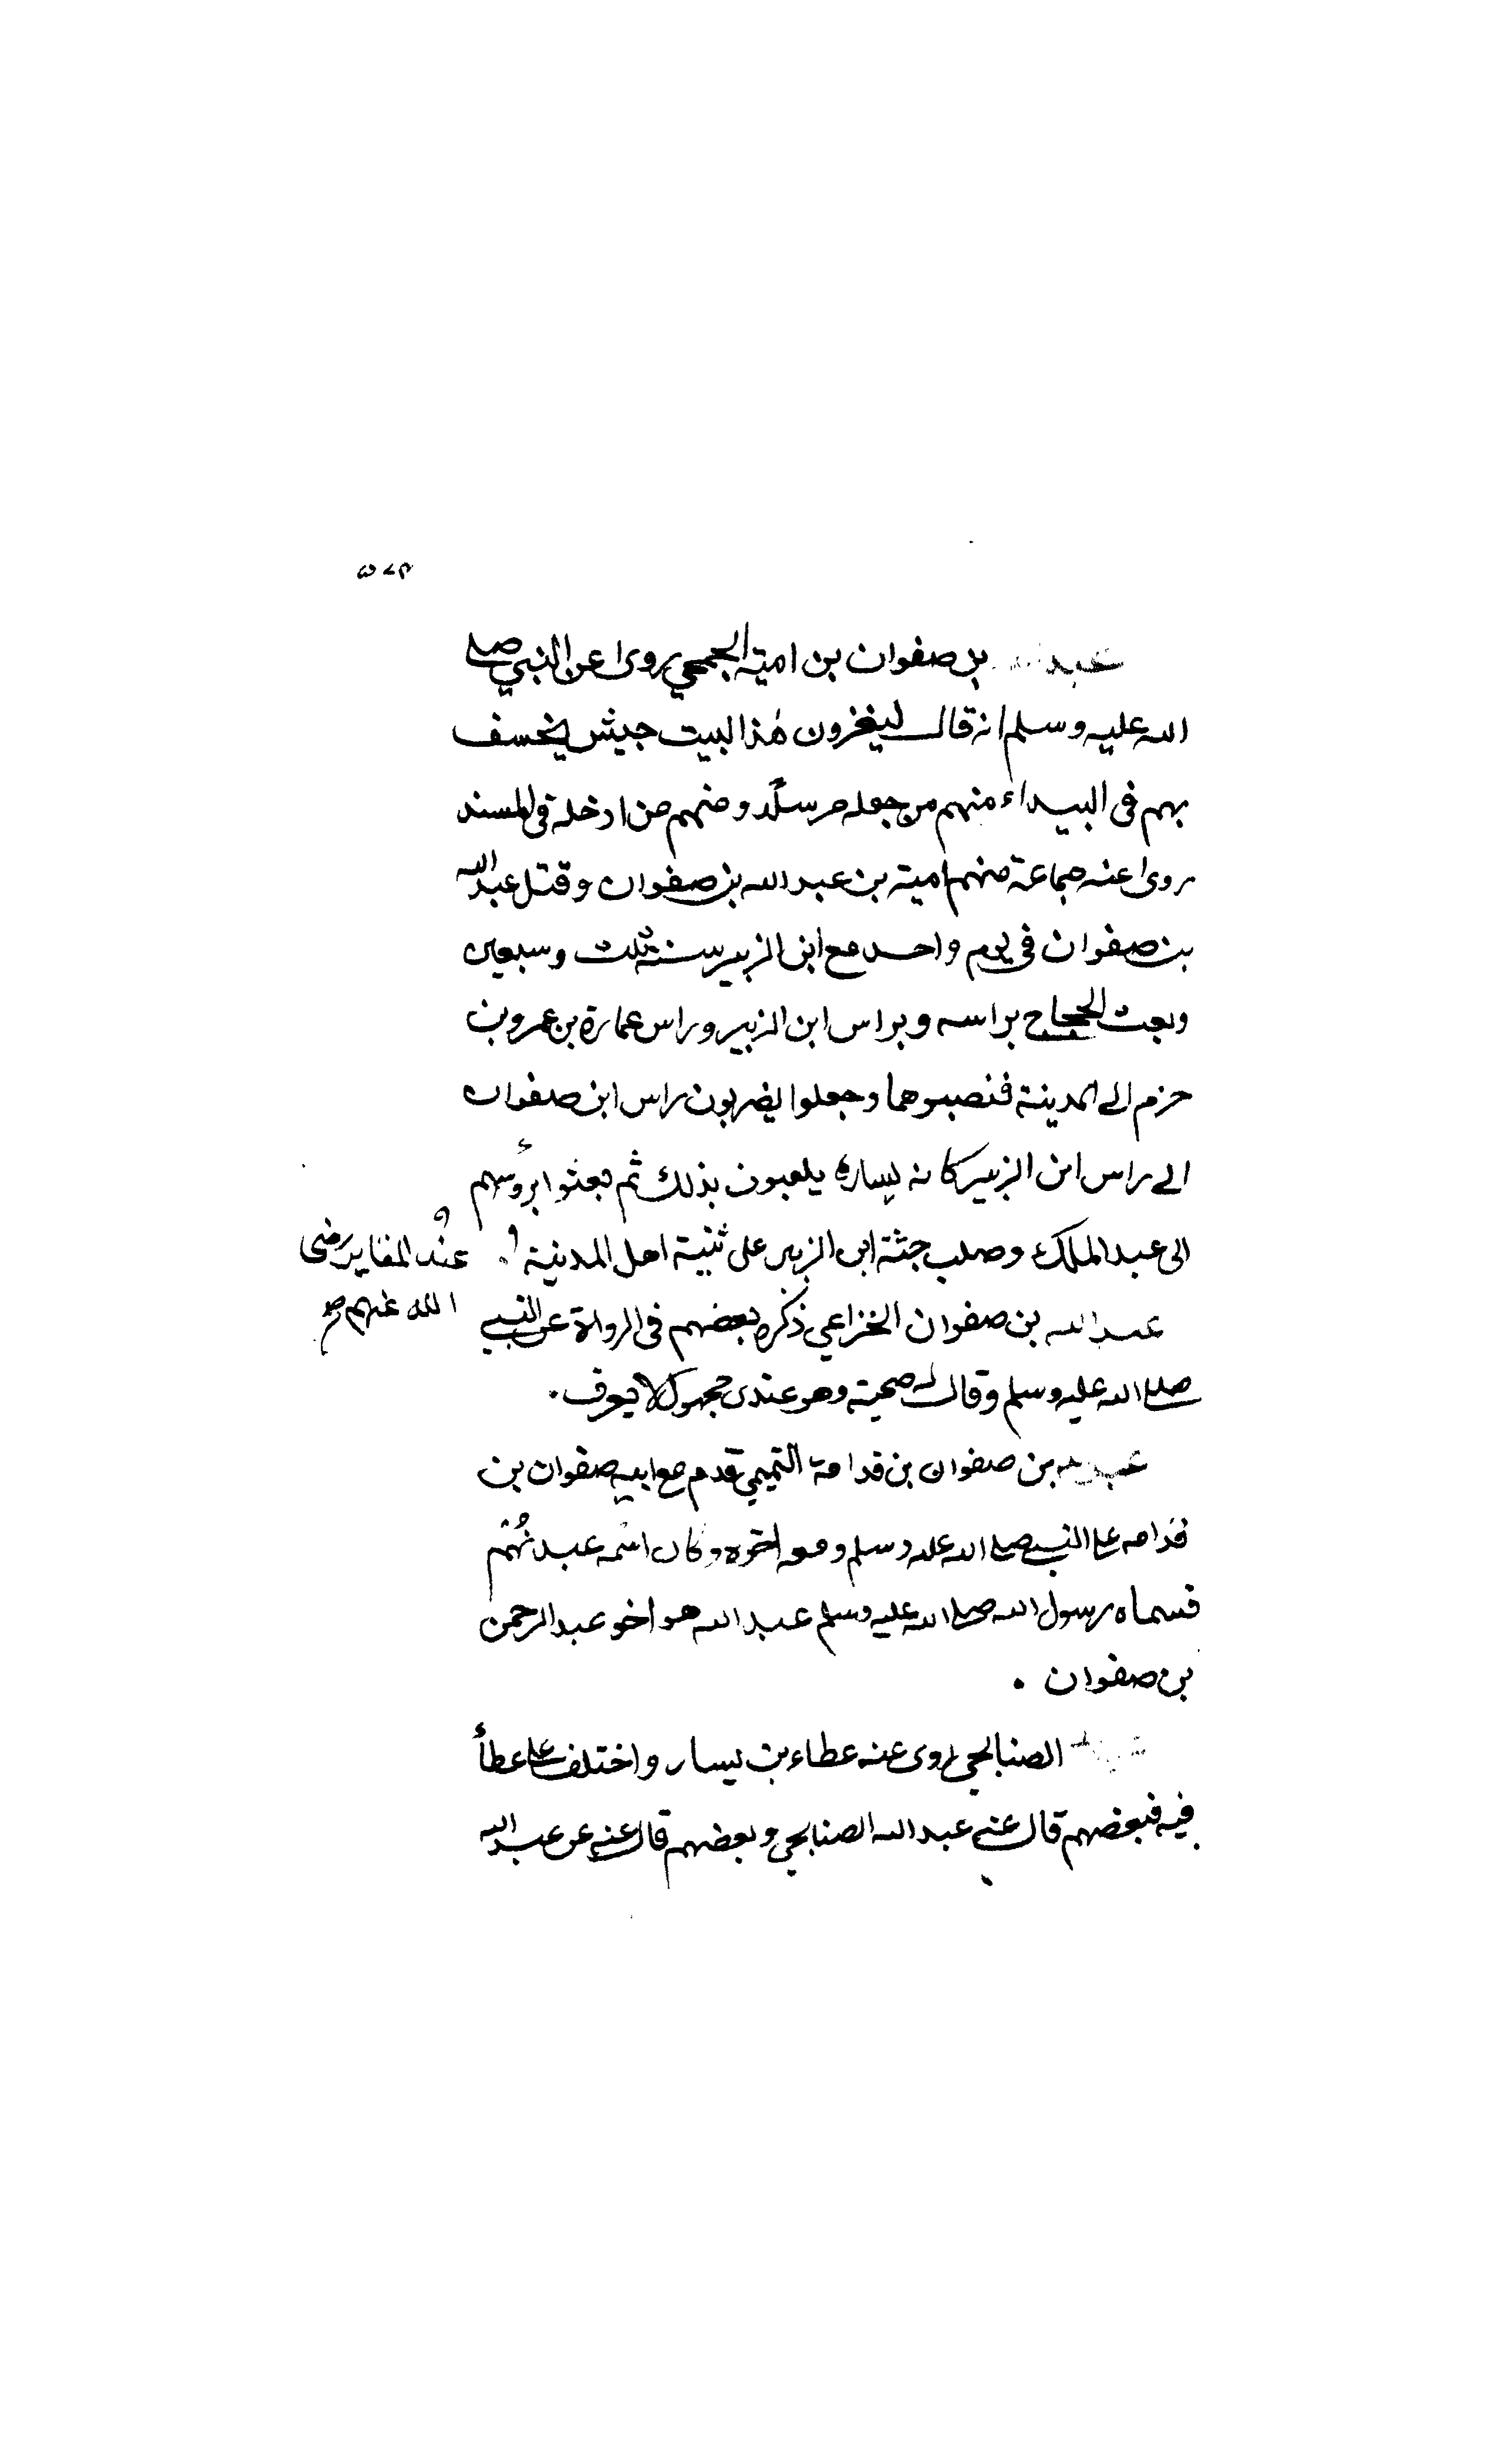 عبد الله بن صفوان بن امية الجمحي روى عن النبي صلى
الله عليه وسلم انه قال ليغزون هذا البيت جيش يخسف
بهم فى البيداء منهم من جعله مرسلا ومنهم من ادخله فى المسند
روى عنه جماعة منهم امية بن عبد الله بن صفوان وقتل عبد الله
بن صفوان فى يوم واحد مع ابن الزبير سنة ثلث وسبعين
وبعث الحجاج براسه وبراس ابن الزبير وراس عمارة بن عمرو بن
حزم الى المدينة فنصبوهما وجعلوا يضربون راس ابن صفوان
الى راس ابن الزبير كانه يساره يلعبون بذلك ثم بعثوا برؤسهم
الى عبد الملك وصلب جثة ابن الزبير على ثنية اهل المدينة
عند المقابر رضى
الله عنهم صح
عبد الله بن صفوان الخزاعي ذكره بعضهم فى الرواة عن النبي
صلى الله عليه وسلم وقال له صحبة وهو عندى مجهول لا يعرف.
عبد الله بن صفوان بن قدامة التميمي قدم مع ابيه صفوان بن
قدامه على النبي صلى الله عليه وسلم ومعه اخوه وكان اسمه عبد نُهْم
فسماه رسول الله صلى الله عليه وسلم عبد الله هو اخو عبد الرحمن
بن صفوان .
الصنابحي روى عنه عطاء بن يسار واختلف على عطأ
فيه فبعضهم قال عنه عبد الله الصنابحي وبعضهم قال عنه عن عبد الله